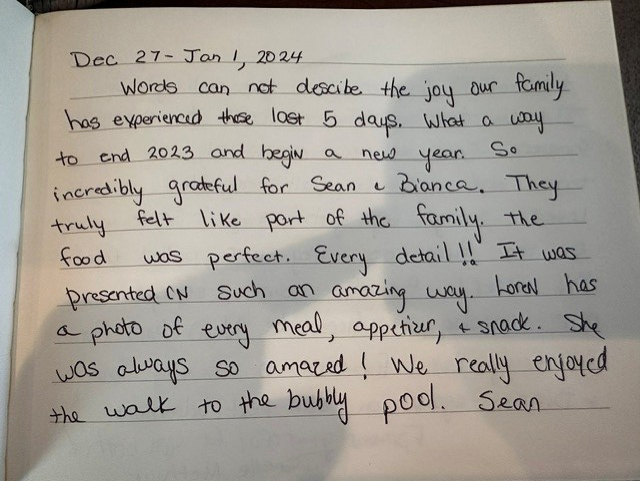 Dec 27- Jan 1, 2024
Words can not descibe the joy our family
has experienced these last 5 days. What a way
to end 2023 and begin a new year. So
incredibly grateful for Sean & Bianca. They
truly felt like part of the family. The
food was perfect. Every detail!! It was
presented in such an amazing way. Loren has
a photo of every meal, appetizer, + snack. She
was always so amazed! We really enjoyed
the walk to the bubbly pool. Sean